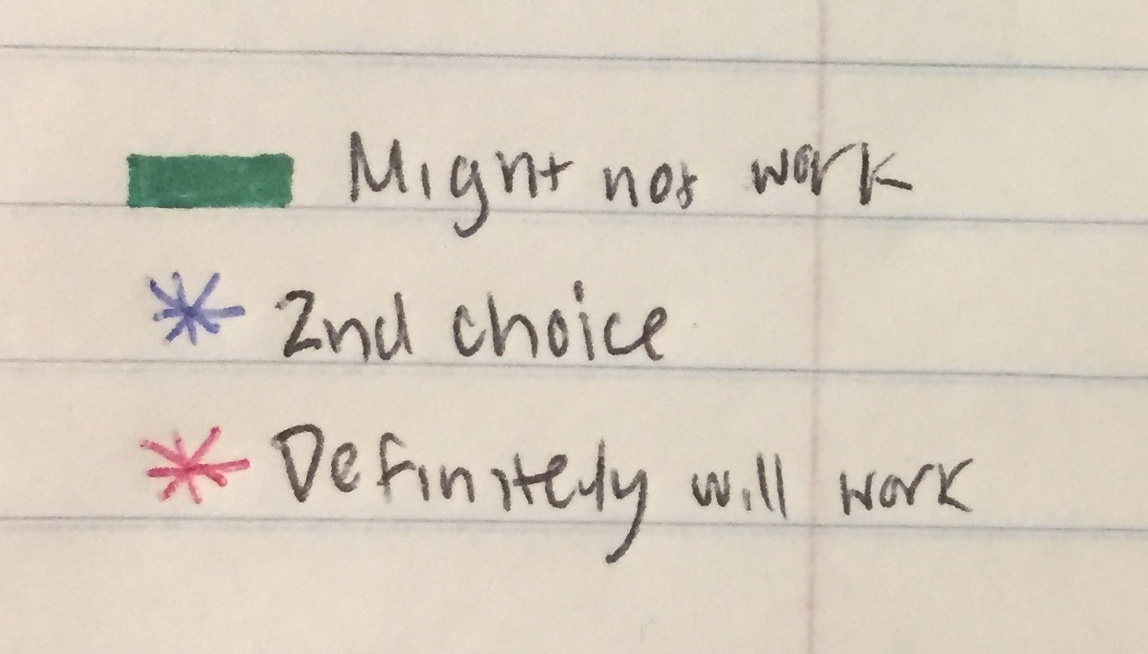 Might not work
2nd choice
Definitely will work